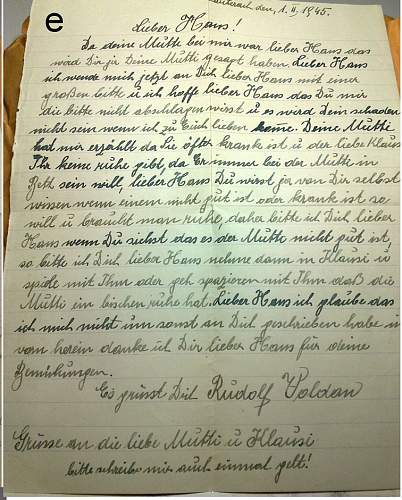 e
den, 1. II. 1945.
Lieber Hans!
Da deine Mutti bei mir war lieber Hans das
wird Dir ja Deine Mutti gesagt haben. Lieber Hans
ich wende mich jetzt an Dich lieber Hans mit einer
großen bitte u ich hoffe lieber Hans das Du mir
die bitte nicht abschlagen wirst u es wird Dein schaden
nicht sein wenn ich zu Euch lieben keine. Deine Mutti
hat mir erzählt da Sie öfter krank ist u der liebe Klausi
Ihr keine ruhe gibt, da Er immer bei der Mutti in
Bett sein will, lieber Hans Du wirst ja von Dir selbst
wissen wenn einem nicht gut ist oder krank ist so
will u braucht man ruhe, daher bitte ich Dich lieber
Hans wenn Du siehst das es der Mutti nicht gut ist,
so bitte ich Dich lieber Hans nehme dann in Klausi u
spiele mit Ihm oder geh spazieren mit Ihm daß die
Mutti ein bischen ruhe hat. Lieber Hans ich glaube das
ich mich nicht um sonst an Dich geschrieben habe u
von herein danke ich Dir lieber Hans für deine
Bemühungen.
Es grüsst Dich Rudolf Voldan
Grüsse an die liebe Mutti u Klausi
bitte schreibe mir auch einmal gelt!